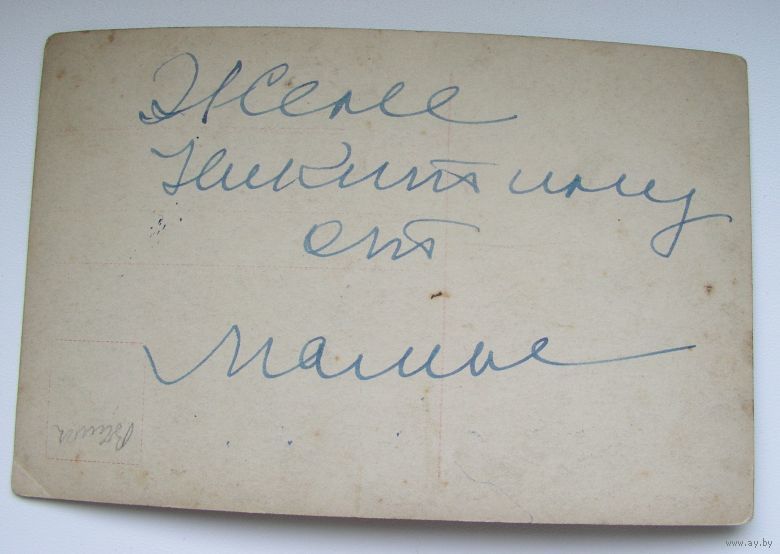 Жене
Никитиному
от
www.ay.by